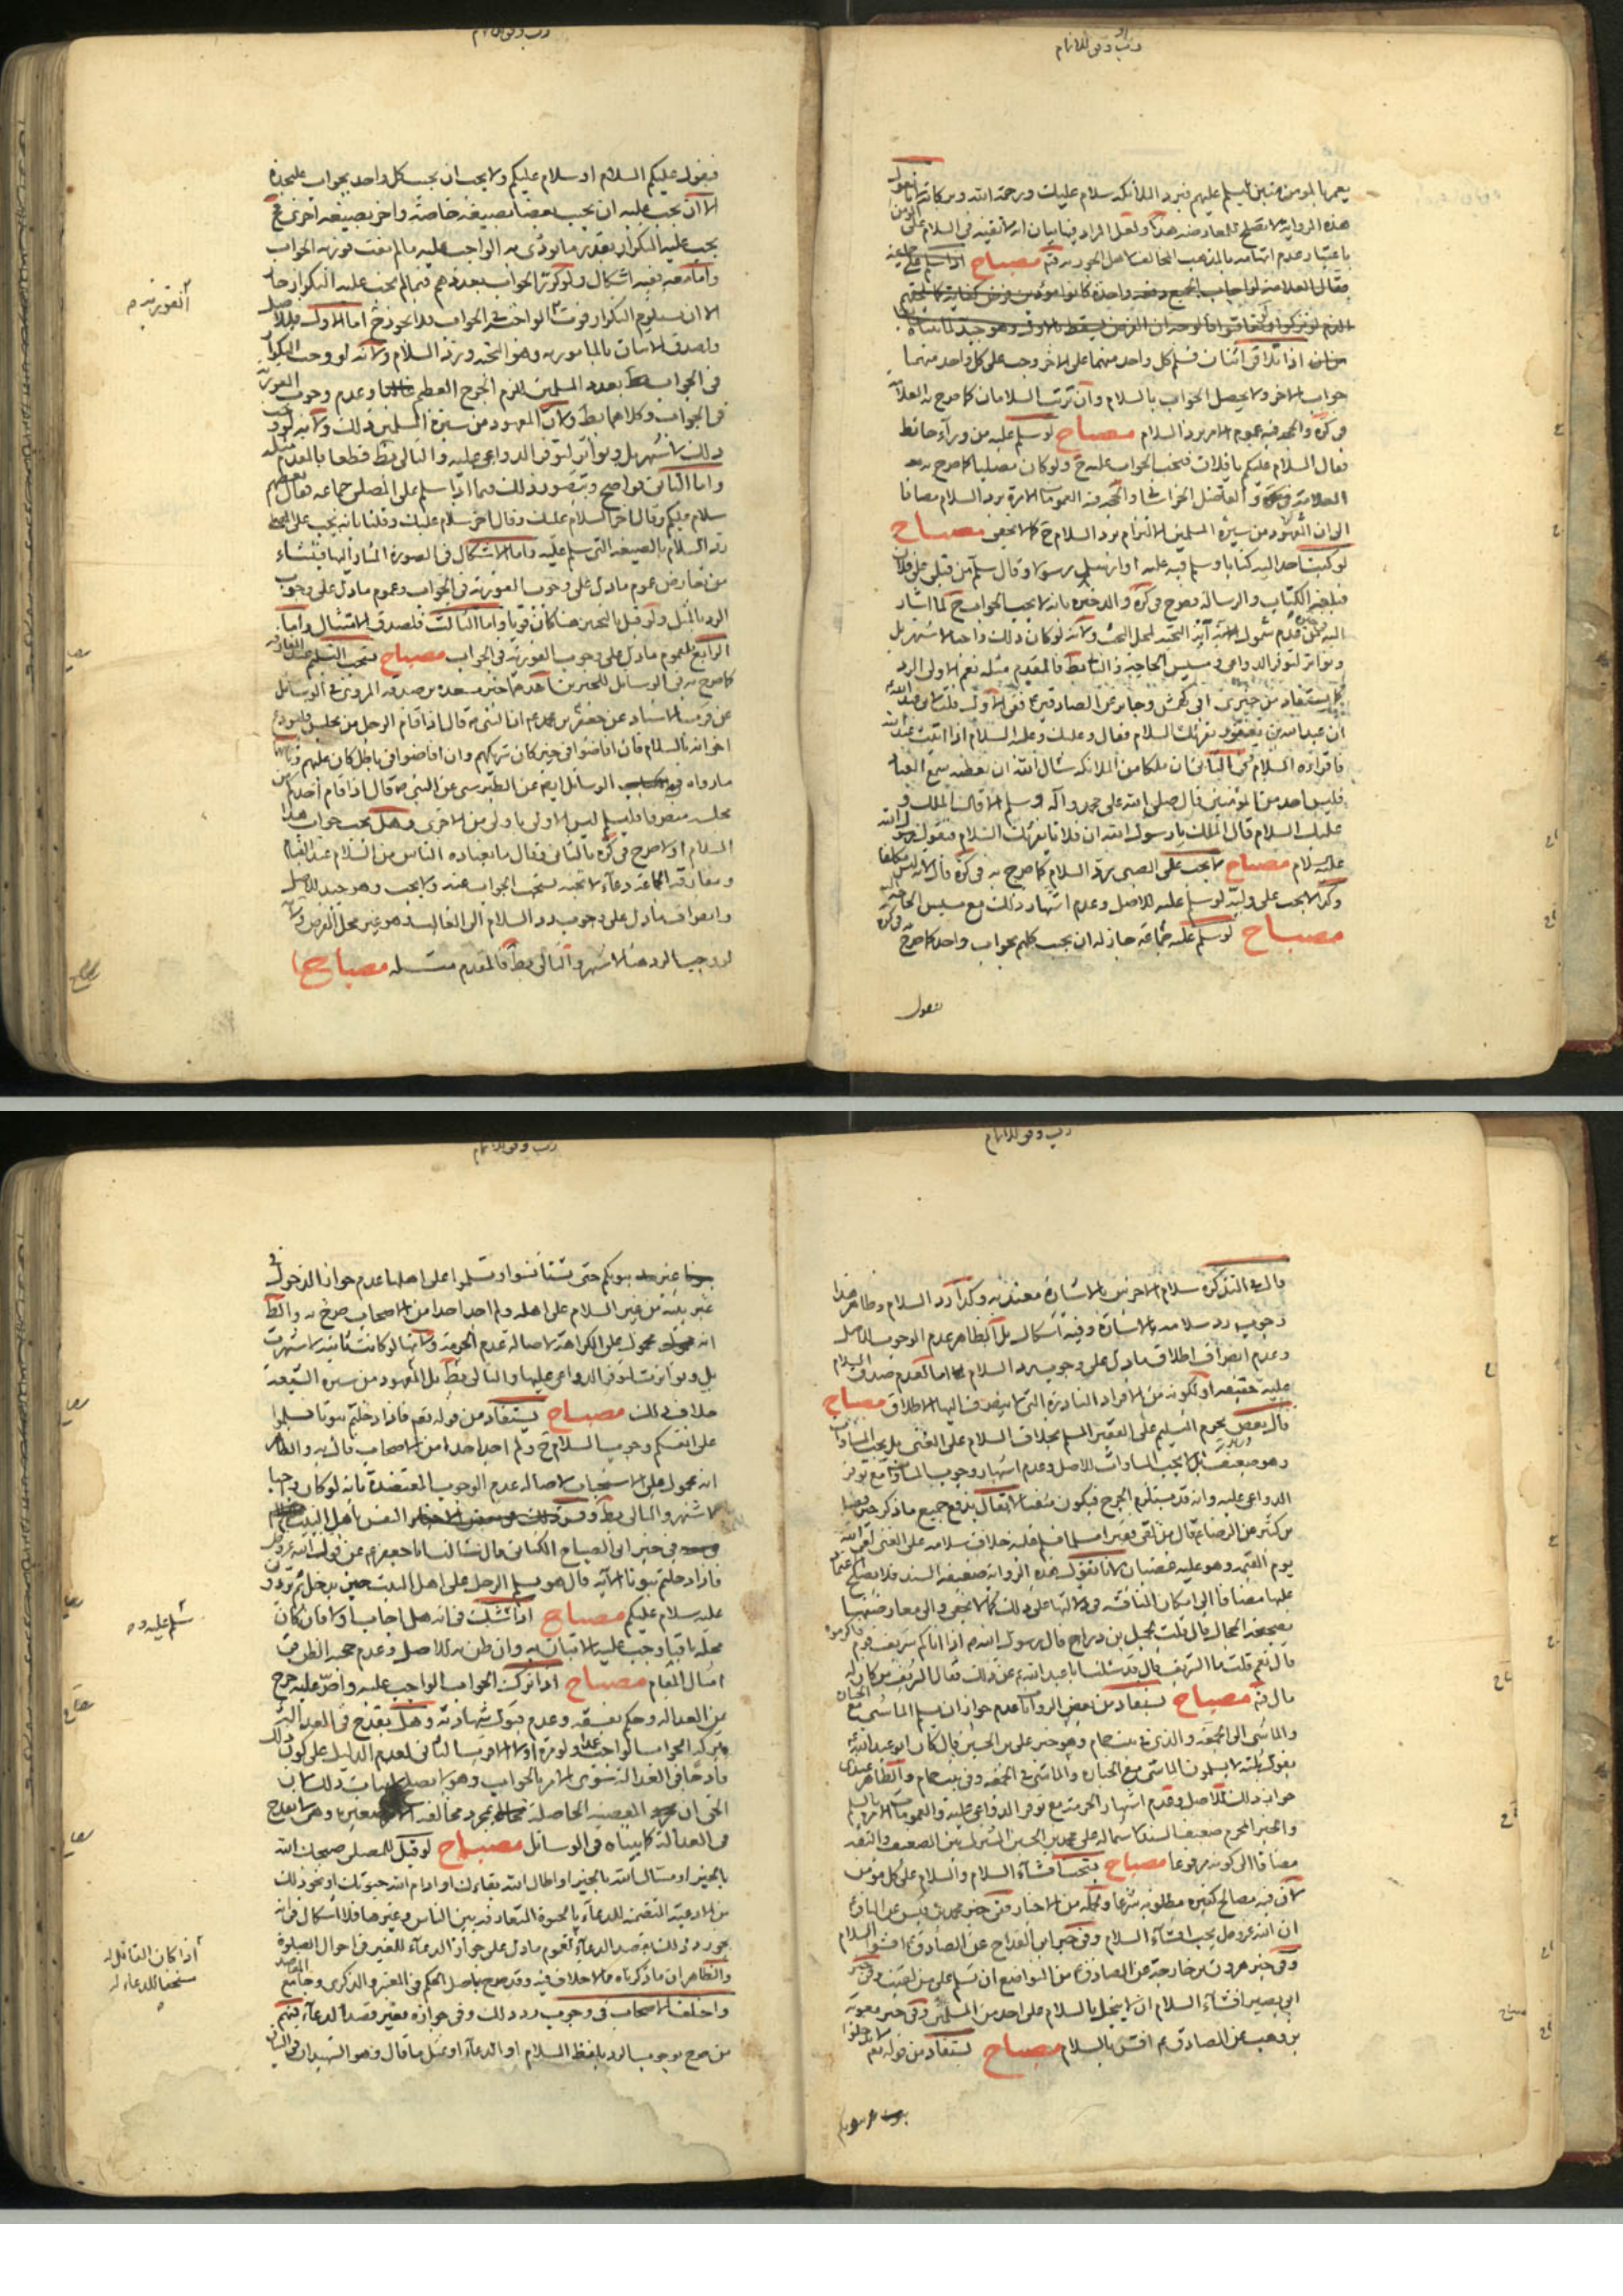 رب وفق للاتمام
يمر بالمؤمنين فيسلم عليهم فيرد الملائكة سلام عليك ورحمة الله وبركاته لأنا نقول
هذه الرواية لا تصلح للمعارضة هذا ولعل المراد فيها بيان انه لا تقية في السلام على المؤمن
باعتبار عدم اتهامه بالمذهب المخالف لاهل الجور به فتم مصباح اذا سلم على جماعة
فقال العلامة لو اجاب الجميع دفعة واحدة كانوا مؤدين فرض كفاية
اذا تلاقى اثنان فسلم كل واحد منهما على الاخر وجب على كل واحد منهما
جواب الاخر ولا يحصل الجواب بالسلام وان ترتب السلامان كما صرح به العلامة
في كره والحجة فيه عموم الامر برد السلام مصباح لو سلم عليه من وراء حائط
فقال السلام عليكم يا فلان فيجب الجواب عليه ح ولو كان مصليا كما صرح به
العلامة في كره و الفاضل الخراساني والحجة فيه العمومات الامرة برد السلام مضافا
الى ان المعهود من سيرة المسلمين الالتزام برد السلام ح كما لا يخفى مصباح
لو كتب احد اليه كتابا وسلم فيه عليه او ارسل رسولا وقال سلم من قبلي على فلان
فبلغه الكتاب والرسالة فصرح في كره والذخيرة بانه لا يجب الجواب ح كما اشار
اليه في عدم شمول اية التحية لمحل البحث ولانه لو كان ذلك واجبا لاشتهر بل
وتواتر لتوفر الدواعي ومسيس الحاجة والتالي بط فالمقدم مثله نعم الاولى الرد
كما يستفاد من خبري ابي كهمش وجابر عن الصادقين ع ففي الاول قلت لابي عبد الله ع
ان عبد الله بن يعفور يقرئك السلام فقال وعليك وعليه السلام اذا اتيت عبد الله
فاقرأه السلام وفي الثاني ان ملكا من الملائكة سال الله ان يعطيه سمع العباد
فليس احد من المؤمنين قال صلى الله على محمد وآله وسلم الا قال الملك و
عليك السلام قال الملك يا رسول الله ان فلانا يقرئك السلام فيقول رسول الله
عليه السلام مصباح لا يجب على الصبي رد السلام كما صرح به في كره قال لانه ليس مكلفا
وكذا لا يجب على وليه لو سلم عليه للاصل وعدم اشتهار ذلك مع مسيس الحاجة اليه
مصباح لو سلم عليه جماعة جاز له ان يجيب كلهم بجواب واحد كما صرح به في كره
فيقول
رب وفق للاتمام
فيقول عليكم السلام او سلام عليكم ولا يجب ان يجيب كل واحد بجواب عليحدة
الا ان يجب عليه ان يجيب بعضا بصيغة خاصة واخر بصيغة اخرى فح
يجب عليه التكرار بقدر ما يؤدي به الواجب عليه ما لم يفت فورية الجواب
واما معه ففيه اشكال ولو كرر الجواب بعددهم فيما لم يجب عليه التكرار جاز
الا ان يستلزم التكرار فوت الواجب في الجواب فلا يجوز ح اما الاول فللاصل
وصدق الاتيان بالمامور به وهو التحية ورد السلام ولانه لو وجب التكرار
في الجواب بعدد المسلمين للزم الحرج العظيم وعدم وجوب الفورية
في الجواب وكلاهما بط ولان المعهود من سيرة المسلمين ذلك ولانه لو وجب
ذلك لاشتهر بل وتواتر لتوفر الدواعي عليه والتالي بط قطعا فالمقدم مثله
واما الثاني فواضح ويتصور ذلك فيما اذا سلم على المصلي جماعة فقال بعضهم
سلام عليكم وقال اخر السلام عليك وقال اخر سلام عليك وقلنا بانه يجب على المصلي
رد السلام بالصيغة التي سلم عليه واما الاشكال في الصورة المشار اليها فينشاء
من تعارض عموم مادل على وجوب الفورية في الجواب وعموم مادل على وجوب
الرد بالمثل ولو قيل بالتخيير هنا كان قويا واما الثالث فلصدق الامتثال واما
الرابع فلعموم مادل على وجوب الفورية في الجواب مصباح يستحب التسليم عند المفارقة
كما صرح به في الوسائل للخبرين احدهما خبر مسعدة بن صدقة المروي في الوسائل
عن قرب الاسناد عن جعفر بن محمد ع ان النبي ص قال اذا قام الرجل من مجلس فليودع
اخوانه بالسلام فان افاضوا في خير كان شريكهم وان افاضوا في باطل كان عليهم وثانيهما
مارواه في الوسائل ايض عن الطبرسي عن النبي ص قال اذا قام احدكم من
مجلسه منصرفا فليسلم ليس الاولى باولى من الاخرى وهل يجب جواب هذا
السلام او لا صرح في كره بالثاني وقال ما يعتاده الناس من السلام عند القيام
ومفارقة الجماعة دعاء لا تحية يستحب الجواب عنه ولا يجب وهو جيد للاصل
وانصراف مادل على وجوب رد السلام الى الغالب وهو غير محل الفرض ولانه
لو وجب الرد هنا لاشتهر والتالي بط فالمقدم مثله مصباح
الفورية ص
رب وفق للاتمام
قال في التذكرة سلام الاخرس بالاشارة معتد به وكذا رد السلام وظاهر هذا
وجوب رد سلامه بالاشارة وفيه اشكال بل الظاهر عدم الوجوب للاصل
وعدم انصراف اطلاق مادل على وجوب رد السلام اما لعدم صدق السلام
عليه حقيقة او لكونه من الافراد النادرة التي لا ينصرف اليها الاطلاق مصباح
قال بعض يحرم التسليم على الفقير المسلم بخلاف السلام على الغني بل يجب المساوات
وهو ضعيف بل لا يجب المساوات للاصل وعدم اشتهار وجوب المساواة مع توفر
الدواعي عليه وانه قد يستلزم الحرج فيكون منفيا لا يقال يدفع جميع ما ذكر خبر فضل
بن كثير عن الرضا ع قال من لقى فقيرا مسلما فسلم عليه خلاف سلامه على الغني لقى الله
يوم القيمة وهو عليه غضبان لانا نقول هذه الرواية ضعيفة السند فلا يصلح الاعتماد
عليها مضافا الى امكان المناقشة في دلالتها على ذلك كما لا يخفى والى معارضتها
بصحيحة الحجال قال قلت لجميل بن دراج قال رسول الله ص اذا اتاكم شريف قوم فاكرموه
قال نعم قلت ما الشريف قال قد سئلت ابا عبد الله ع عن ذلك فقال الشريف من كان له
مال فتم مصباح يستفاد من بعض الروايات عدم جواز ان يسلم الماشي مع الجنازة
والماشي الى الجمعة والذي في بيت حمام وهو خبر علي بن الحسين قال كان ابو عبد الله ع
يقول ثلثة لا يسلمون الماشي مع الجنازة والماشي الى الجمعة وفي بيت حمام والظاهر عندي
جواز ذلك للاصل وعدم اشتهار الحرمة مع توفر الدواعي عليه والعمومات الامرة بالسلام
والخبر المحرم ضعيف السند لاشتماله على محمد بن الحسين المشترك بين الضعيف والثقة
مضافا الى كونه مرفوعا مصباح يستحب افشاء السلام والسلام على كل مؤمن
لان فيه مصالح كثيرة مطلوبة شرعا وجملة من الاخبار ففي خبر محمد بن قيس عن الباقر ع
ان الله عز وجل يحب افشاء السلام وفي خبر ابن القداح عن الصادق ع افشوا السلام
وفي خبر هرون بن خارجة عن الصادق ع من التواضع ان تسلم على من لقيت وفي خبر
ابي بصير افشاء السلام ان لا يبخل بالسلام على احد من المسلمين وفي خبر معوية
بن وهب عن الصادق ع افش بالسلام مصباح يستفاد من قوله تع لا تدخلوا
بيوتا غير بيوتكم
رب وفق للاتمام
بيوتا غير بيوتكم حتى تستانسوا وتسلموا على اهلها عدم جواز الدخول في
غير بيته من غير السلام على اهله ولم اجد احدا من الاصحاب صرح به والظ
انه محمول على الكراهة لاصالة عدم الحرمة ولانها لو كانت ثابتة لاشتهرت
بل وتواترت لتوفر الدواعي عليها والتالي بط بل المعهود من سيرة الشيعة
خلاف ذلك مصباح يستفاد من قوله تع فاذا دخلتم بيوتا فسلموا
على انفسكم وجوب السلام ح ولم اجد احدا من الاصحاب قال به والظاهر
انه محمول على الاستحباب لاصالة عدم الوجوب المعتضدة بانه لو كان واجبا
لاشتهر والتالي بط وقد فسر النفس باهل البيت
في خبر ابي الصباح الكناني قال سالت ابا جعفر ع عن قول الله عز وجل
فاذا دخلتم بيوتا الاية قال هو تسليم الرجل على اهل البيت حين يدخل ثم يردون
عليه سلام عليكم مصباح اذا شك في انه هل اجاب او لا فان كان
محله باقيا وجب عليه الاتيان به وان ظن به للاصل وعدم حجية الظن في
امثال المقام مصباح اذا ترك الجواب الواجب عليه واصر عليه خرج
عن العدالة وحكم بفسقه وعدم قبول شهادته وهل يقدح في العدالة
ترك الجواب الواجب عمدا ولو مرة او لا الاقرب الثاني لعدم الدليل على كون ذلك
قادحا في العدالة سوى الامر بالجواب وهو لا يصلح لاثبات ذلك لان
الحق ان المعصية الحاصلة بمجرد مخالفة الامر صغيرة وهي لا تقدح
في العدالة كما بيناه في الوسائل مصباح لو قيل للمصلي صبحك الله
بالخير او مساك الله بالخير او اطال الله بقاءك او ادام الله حيوتك او نحو ذلك
من الادعية المتضمنة للدعاء بالحيوة المتعارفة بين الناس وغيرها فلا اشكال في انه
يجوز رد ذلك بقصد الدعاء لعموم مادل على جواز الدعاء للغير في احوال الصلوة
والظاهر ان ما ذكرناه مما لا خلاف فيه وقد صرح باصل الحكم في المعتبر والذكرى وجامع المقاصد
واختلف الاصحاب في وجوب رد ذلك وفي جوازه بغير قصد الدعاء فمنهم
من صرح بوجوب الرد بلفظ السلام او الدعاء او بمثل ما قال وهو الشهيدان في البيان
سلم عليه ص
اذا كان القائل له
مستحقا للدعاء له